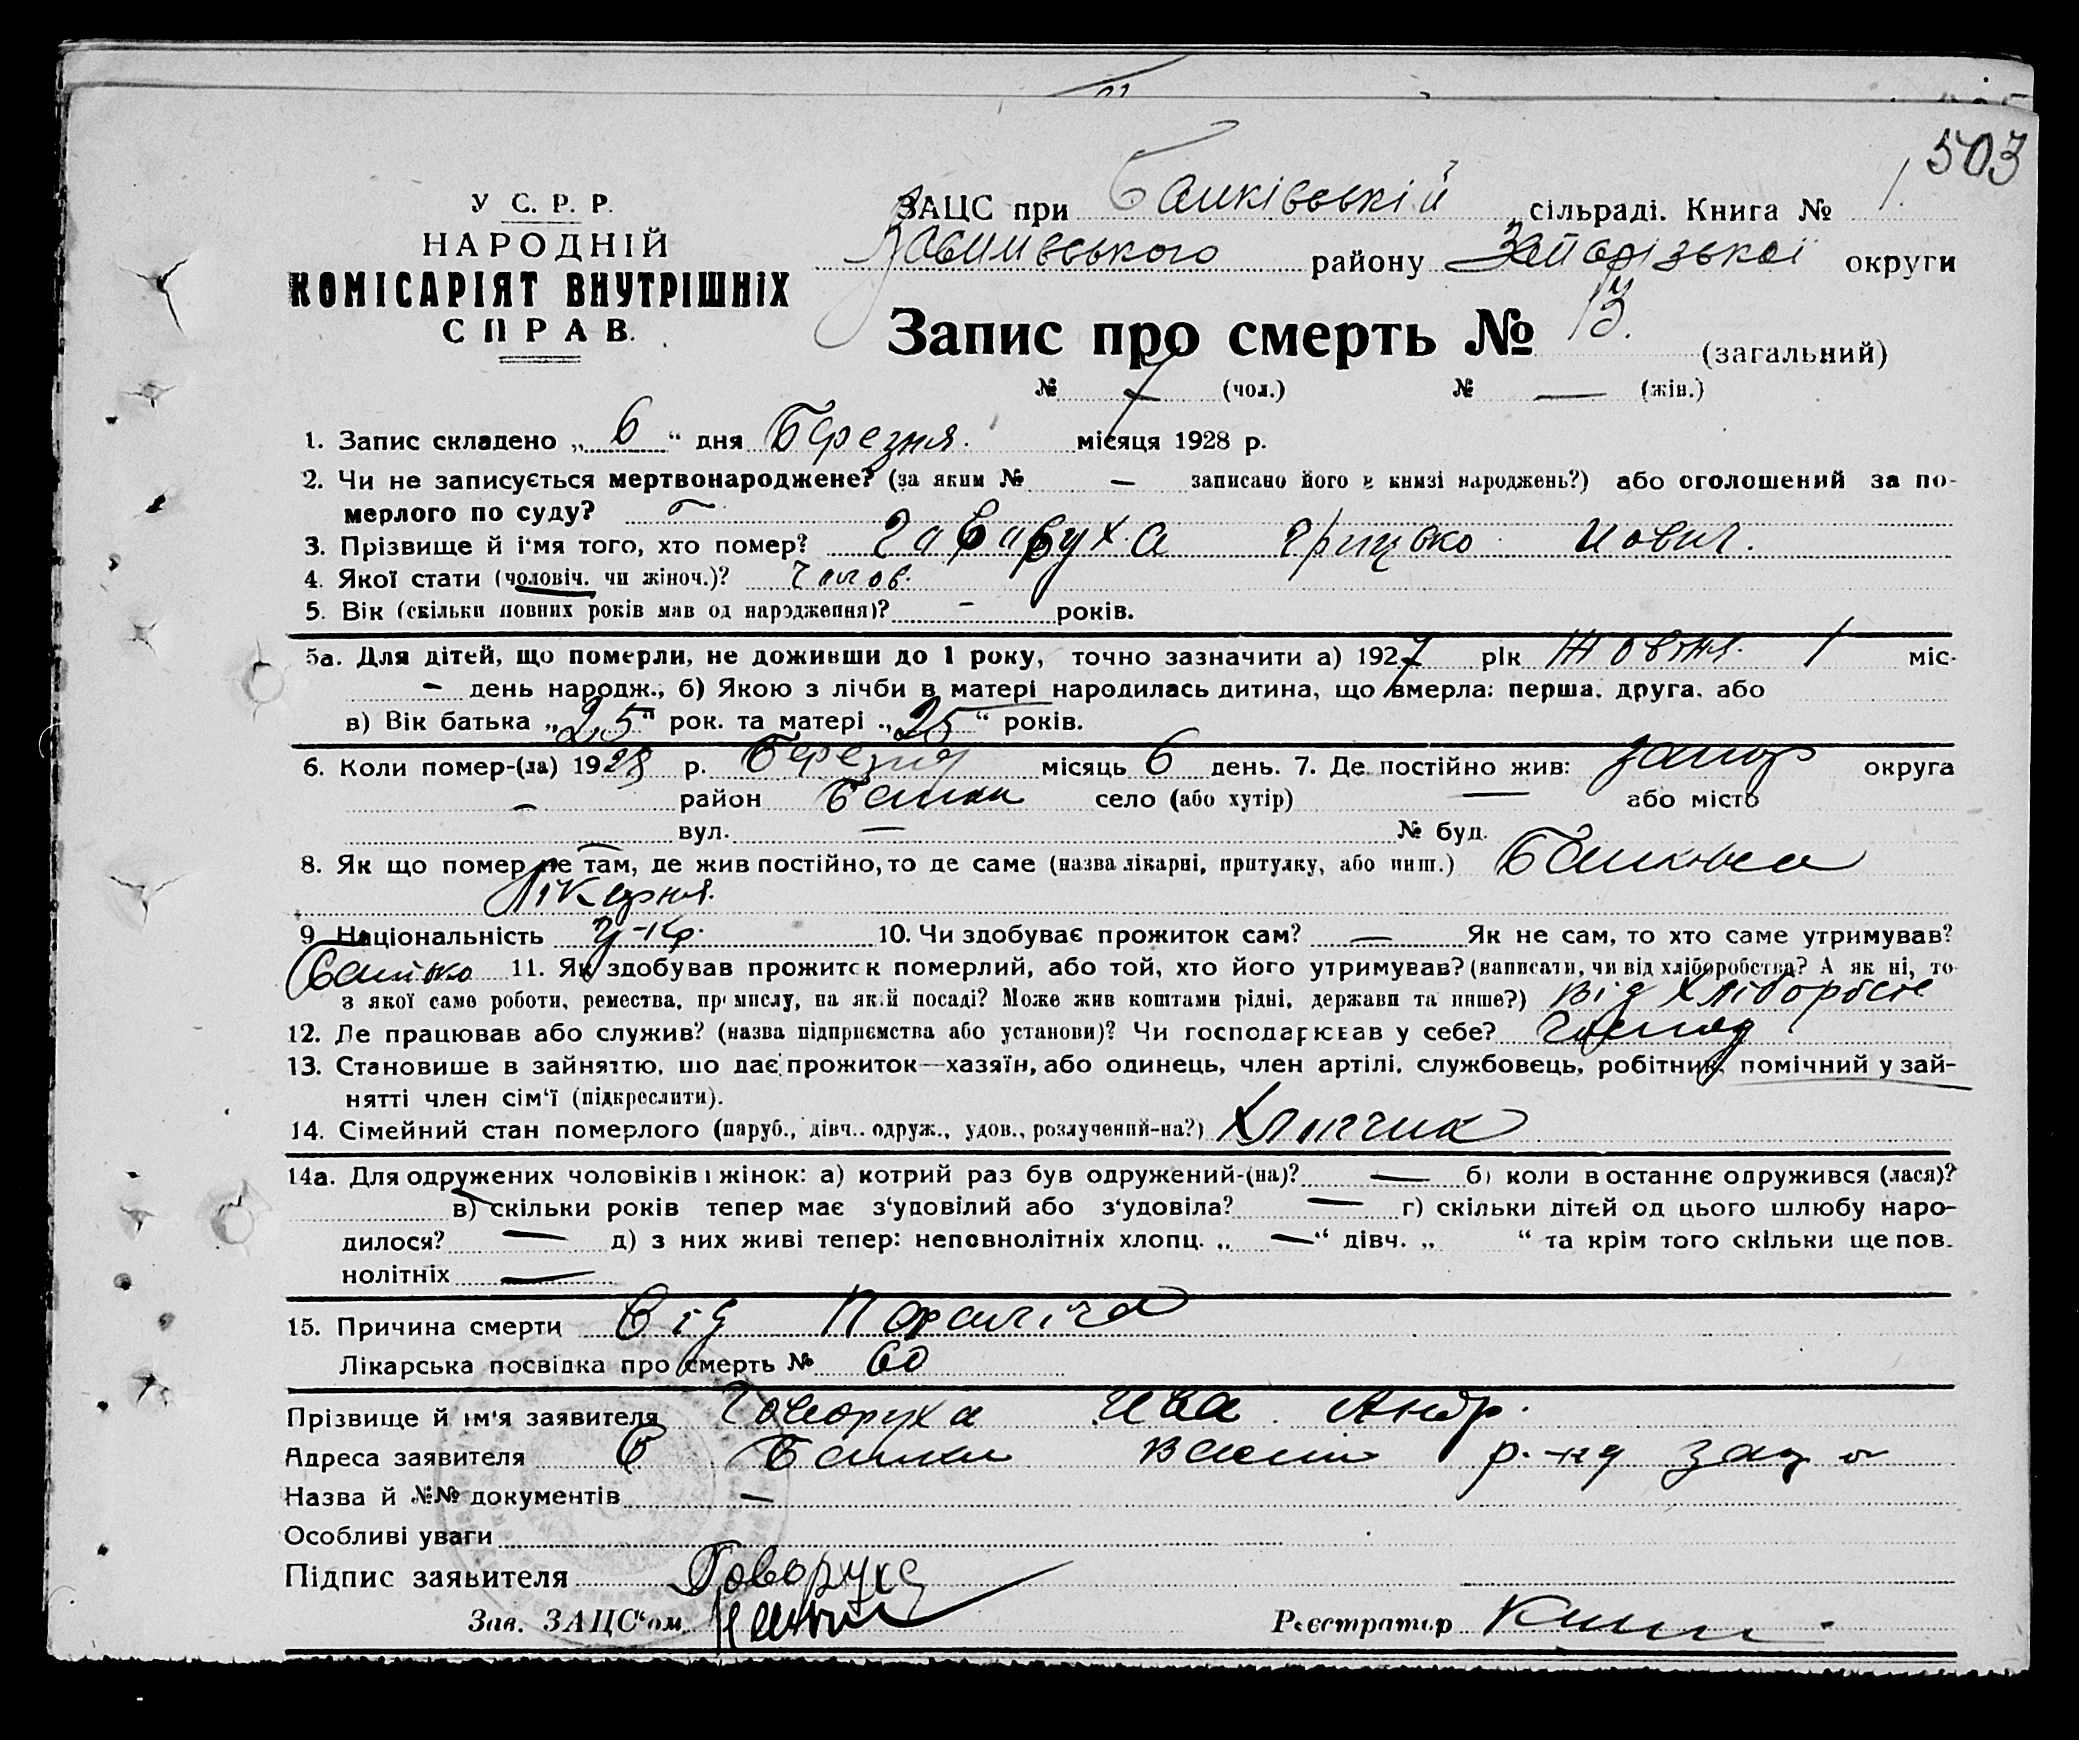 503
У С. Р. Р.
НАРОДНІЙ
КОМІСАРІЯТ ВНУТРІШНІХ
СПРАВ.
ЗАЦС при сільраді. Книга № 1.
району Запорізької округи
Запис про смерть № 13. (загальний)
№ 7 (чол.) № — (жін.)
1. Запис складено „ 6 “ дня Березня. місяця 1928 р.
2. Чи не записується мертвонароджене? (за яким № — записано його в книзі народжень?) або оголошений за по-
мерлого по суду? —
3. Прізвище й ім'я того, хто помер? Грицько
4. Якої стати (чоловіч. чи жіноч.)? Чолов.
5. Вік (скільки повних років мав од народження)? — років.
5а. Для дітей, що померли, не доживши до 1 року, точно зазначити а) 1927 рік Жовтня. 1 міс.
— день народж., б) Якою з лічби в матері народилась дитина, що вмерла: перша, друга, або
в) Вік батька „ 25 “ рок. та матері „ 25 “ років.
6. Коли помер-(ла) 1928 р. Березня місяць 6 день. 7. Де постійно жив: Запор округа
— район село (або хутір) — або місто
вул. — № буд.
8. Як що помер не там, де жив постійно, то де саме (назва лікарні, притулку, або инш.)
Лікарня.
9. Національність Укр. 10. Чи здобуває прожиток сам? — Як не сам, то хто саме утримував?
Батько 11. Як здобував прожиток померлий, або той, хто його утримував? (написати, чи від хліборобства? А як ні, то
з якої само роботи, ремества, промислу, на якій посаді? Може жив коштами рідні, держави та инше?) Від хліборобств
12. Де працював або служив? (назва підприємства або установи)? Чи господарював у себе? Господ
13. Становище в зайняттю, що дає прожиток—хазяїн, або одинець, член артілі, службовець, робітник, помічний у зай-
нятті член сім'ї (підкреслити).
14. Сімейний стан померлого (паруб., дівч.. одруж., удов., розлучений-на?) Хлопчик
14а. Для одружених чоловіків і жінок: а) котрий раз був одружений-(на)? — б) коли в останнє одружився (лася)?
в) скільки років тепер має з'удовілий або з'удовіла? — г) скільки дітей од цього шлюбу наро-
дилося? — д) з них живі тепер: неповнолітніх хлопц. „ — “ дівч. „ “ та крім того скільки ще пов.
нолітніх —
15. Причина смерти Від Параліча
Лікарська посвідка про смерть № 60
Прізвище й ім'я заявителя Говоруха Ива Андр.
Адреса заявителя
Назва й №№ документів —
Особливі уваги
Підпис заявителя Говоруха
Зав. ЗАЦС“ом Реєстратор